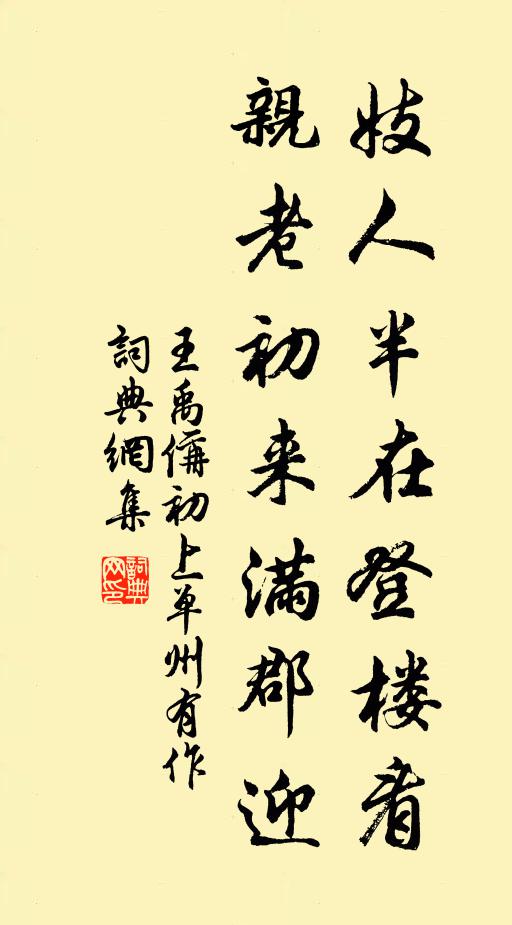 妓人半在登楼看
親老初来滿郡迎
王禹偁初上单州有作
詞典網集
詞典网印